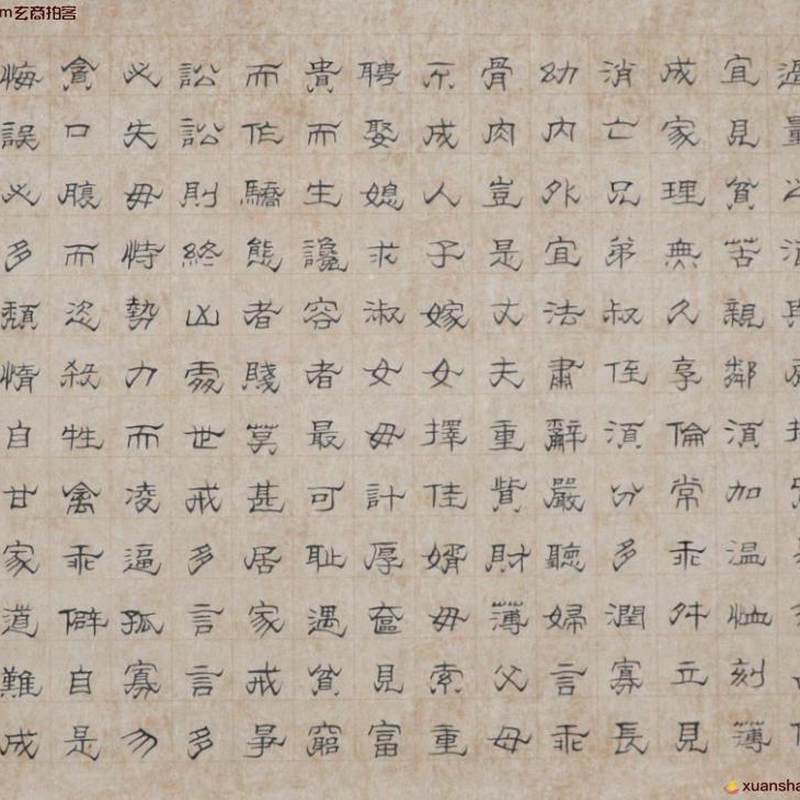 過量
宜見貧苦親鄰須加温恤刻薄
成家理無久享倫常乖舛立見
消亡兄弟叔侄須分多潤寡長
幼内外宜法肅辭嚴聽婦言乖
骨肉豈是丈夫重貲財薄父母
不成人子嫁女擇佳婿毋索重
聘娶媳求淑女毋計厚奩見富
貴而生讒容者最可耻遇貧窮
而作驕態者賤莫甚居家戒爭
訟訟則終凶處世戒多言言多
必失毋恃勢力而凌逼孤寡勿
貪口腹而恣殺牲禽乖僻自是
悔誤必多頹惰自甘家道難成
m玄商拍客
xuansha